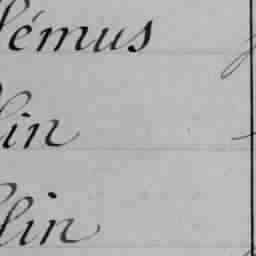 lémus
lin
llin